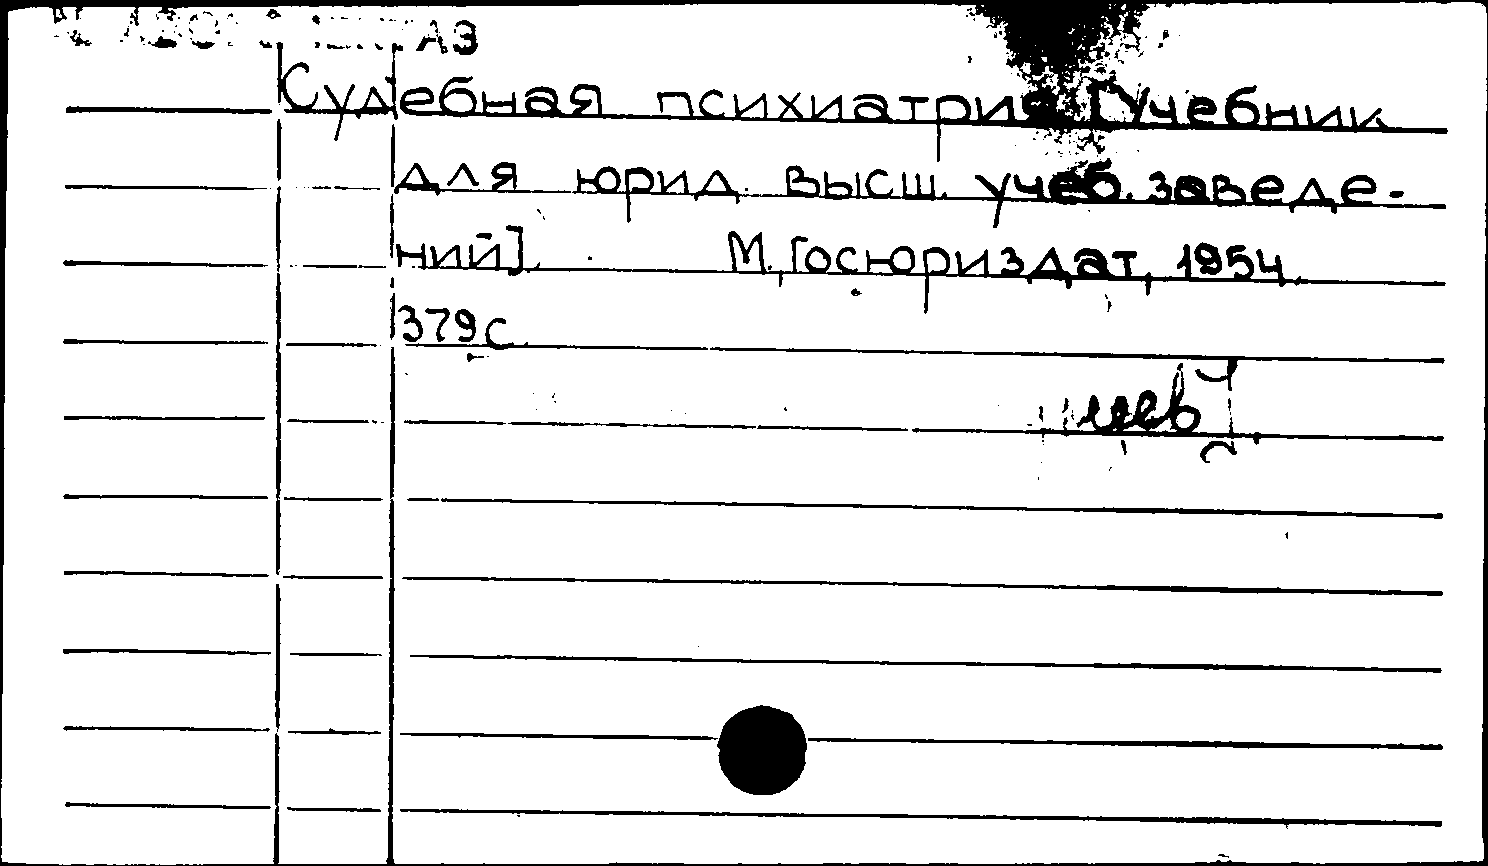 Судебная психиатрия [Учебник
для юрид. высш. учеб. заведе-
ний]. М., Госюриздат, 1954.
379 с.